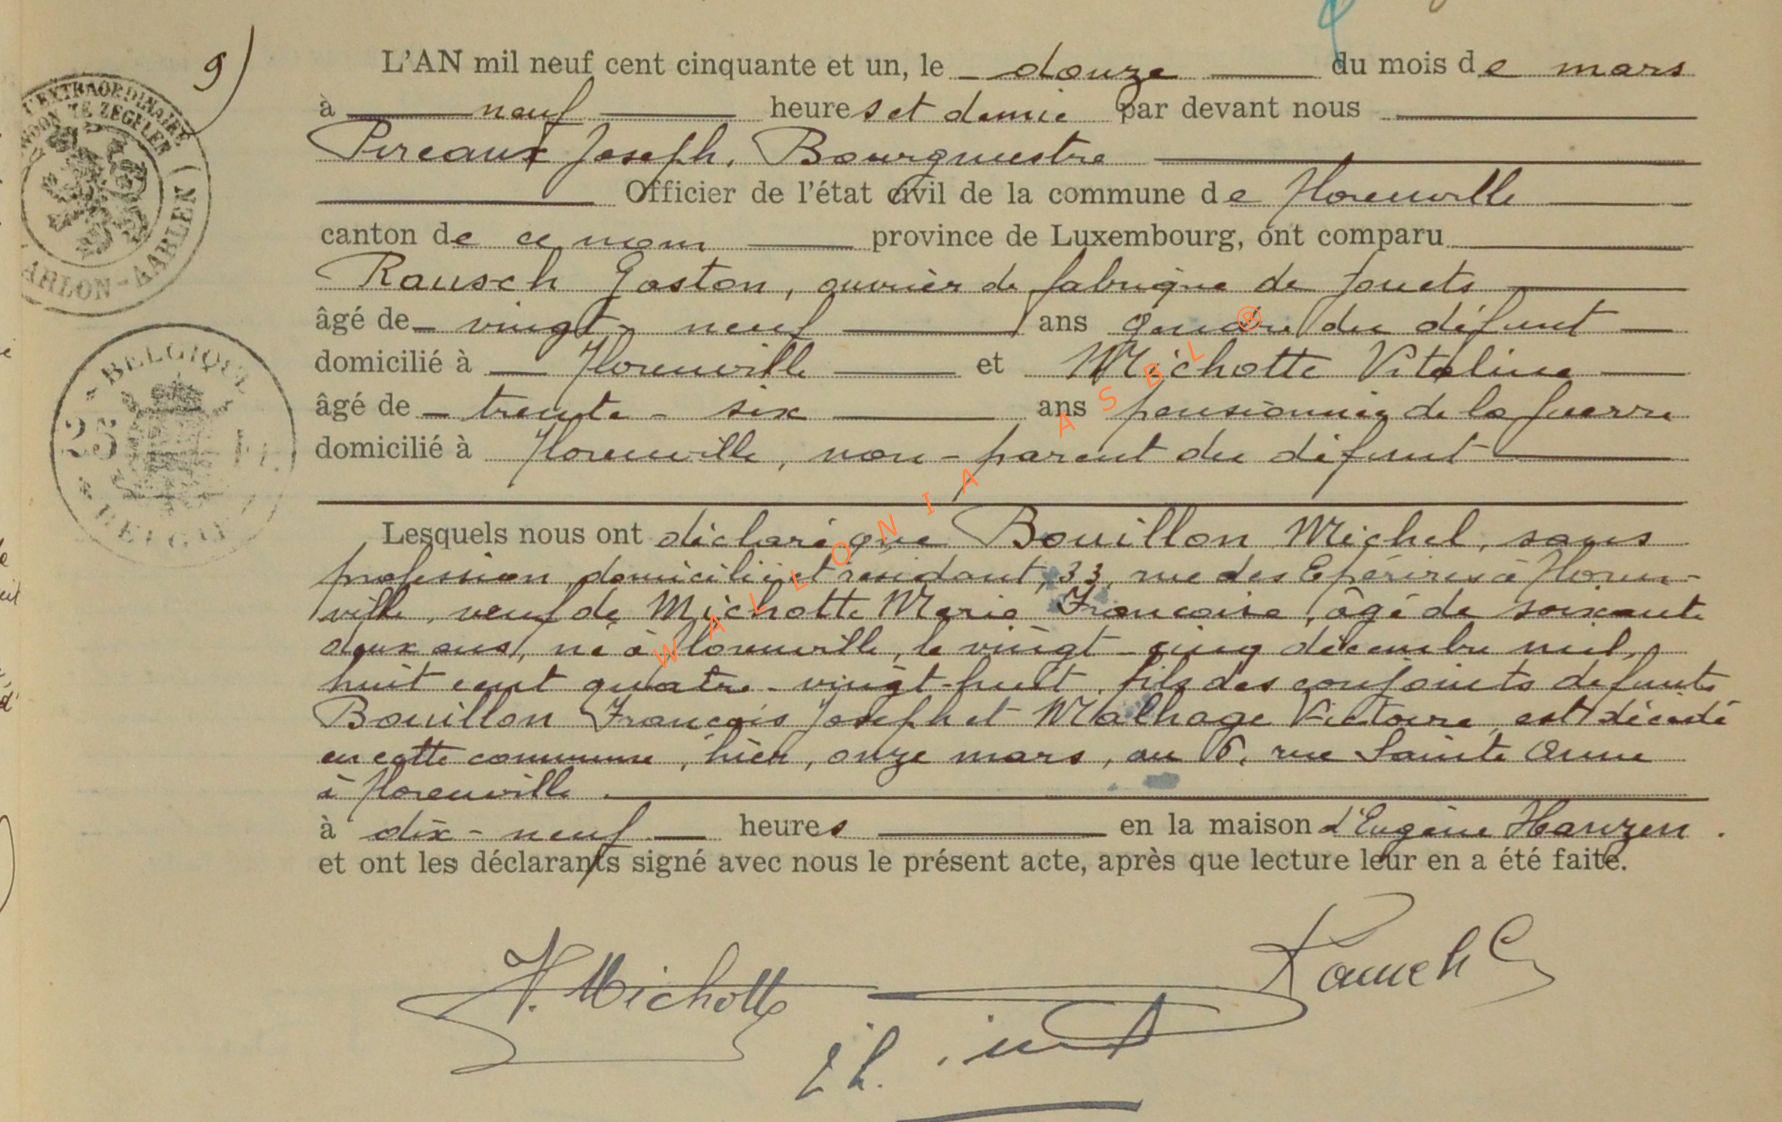 9)
L'EXTRAORDINAIRE
WOON TE ZEGELEN
ARLON - AARLEN
BELGIQUE
25 Fr.
BELGIË
L'AN mil neuf cent cinquante et un, le douze du mois de mars
à neuf heures et demie par devant nous
Pireaux Joseph, Bourgmestre
Officier de l'état civil de la commune de Florenville
canton de ce nom province de Luxembourg, ont comparu
Rausch Gaston, ouvrier de fabrique de jouets
âgé de vingt-neuf ans gendre du défunt
domicilié à Florenville et Michotte Vitaline
âgé de trente-six ans pensionnée de la guerre
domicilié à Florenville, non-parent du défunt
Lesquels nous ont déclaré que Bouillon Michel, sans
profession, domicilié et résidant, 33, rue des Epérires à Floren-
ville, veuf de Michotte Marie Françoise, âgé de soixante
deux ans, né à Florenville, le vingt-cinq décembre mil
huit cent quatre-vingt-huit, fils des conjoints défunts
Bouillon François Joseph et Malhage Victoire, est décédé
en cette commune, hier, onze mars, au 6, rue Sainte Anne
à Florenville.
à dix-neuf heures en la maison d'Eugène Hanzen.
et ont les déclarants signé avec nous le présent acte, après que lecture leur en a été faite.
V. Michotte
Rausch G
WALLONIA ASBL ®